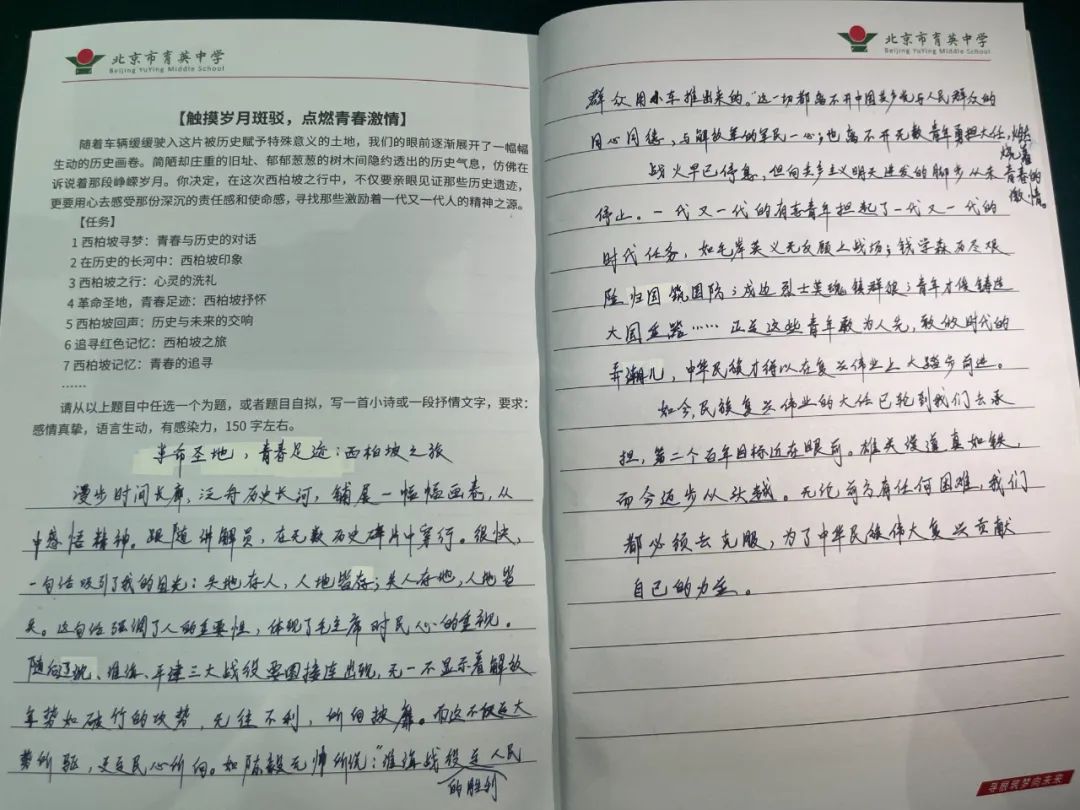 北京市育英中学
Beijing YuYing Middle School
【触摸岁月斑驳，点燃青春激情】
随着车辆缓缓驶入这片被历史赋予特殊意义的土地，我们的眼前逐渐展开了一幅幅
生动的历史画卷。简陋却庄重的旧址、郁郁葱葱的树木间隐约透出的历史气息，仿佛在
诉说着那段峥嵘岁月。你决定，在这次西柏坡之行中，不仅要亲眼见证那些历史遗迹，
更要用心去感受那份深沉的责任感和使命感，寻找那些激励着一代又一代人的精神之源。
【任务】
1 西柏坡寻梦：青春与历史的对话
2 在历史的长河中：西柏坡印象
3 西柏坡之行：心灵的洗礼
4 革命圣地，青春足迹：西柏坡抒怀
5 西柏坡回声：历史与未来的交响
6 追寻红色记忆：西柏坡之旅
7 西柏坡记忆：青春的追寻
……
请从以上题目中任选一个为题，或者题目自拟，写一首小诗或一段抒情文字，要求：
感情真挚，语言生动，有感染力，150 字左右。
革命圣地，青春足迹：西柏坡之旅
漫步时间长廊，泛舟历史长河，铺展一幅幅画卷，从
中感悟精神。跟随讲解员，在无数历史碎片中穿行。很快，
一句话吸引了我的目光：失地存人，人地皆存；失人存地，人地皆
失。这句话强调了人的重要性，体现了毛主席对民心的重视。
随向辽沈、淮海、平津三大战役要图接连出现，无一不显示着解放
军势如破竹的攻势，无往不利，所向披靡。而这不仅是大
势所驱，更是民心所向。如陈毅元帅所说：“淮海战役是人民
的胜利
北京市育英中学
Beijing YuYing Middle School
群众用小车推出来的。”这一切都离不开中国共产党与人民群众的
同心同德，与解放军的军民一心；也离不开无数青年勇担大任，燃
烧着
青春的
激情。
战火早已停息，但向共产主义明天进发的脚步从未
停止。一代又一代的有志青年担起了一代又一代的
时代任务，如毛岸英义无反顾上战场；钱学森历尽艰
险归国筑国防；戍边烈士英魂镇群狼；青年才俊铸造
大国重器……正是这些青年敢为人先，敢做时代的
弄潮儿，中华民族才得以在复兴伟业上大踏步前进。
如今，民族复兴伟业的大任已轮到我们去承
担，第二个百年目标近在眼前。雄关漫道真如铁，
而今迈步从头越。无论前方有任何困难，我们
都必须去克服，为了中华民族伟大复兴贡献
自己的力量。
导航筑梦向未来